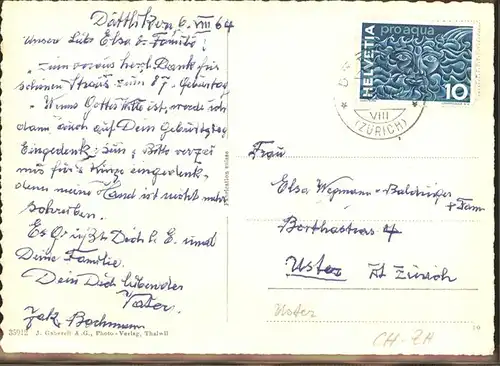 Dättlikon 6. VIII 64
Unsere Liebe Elsa & Familie!
zum voraus herzl. Dank für
schönen Strauss zum 87. Geburtstag
Wenns Gottes Wille ist, werde ich
dann auch auf Dein Geburtstag
Eingedenk sein, Bitte verzei
mir für's Kürze eingedenk,
denn meine Hand ist nicht mehr
schreiben.
Es grüßt Dich l. E. und
Deine Familie.
Dein Dich liebender
Vater.
Jak. Bachmann
35912 J. Gaberell A.G., Photo-Verlag, Thalwil
HELVETIA
pro aqua
10
VIII
(ZÜRICH)
Frau
Elsa Wegmann-
+ Fam
Berthastrass 4
Uster Kt Zürich
Uster
CH-ZH